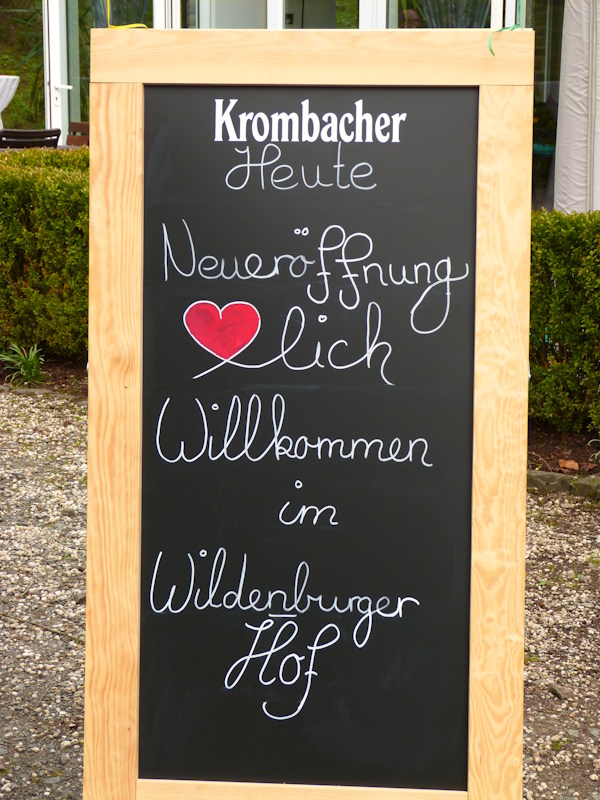 Krombacher
Heute
Neueröffnung
lich
Willkommen
im
Wildenburger
Hof